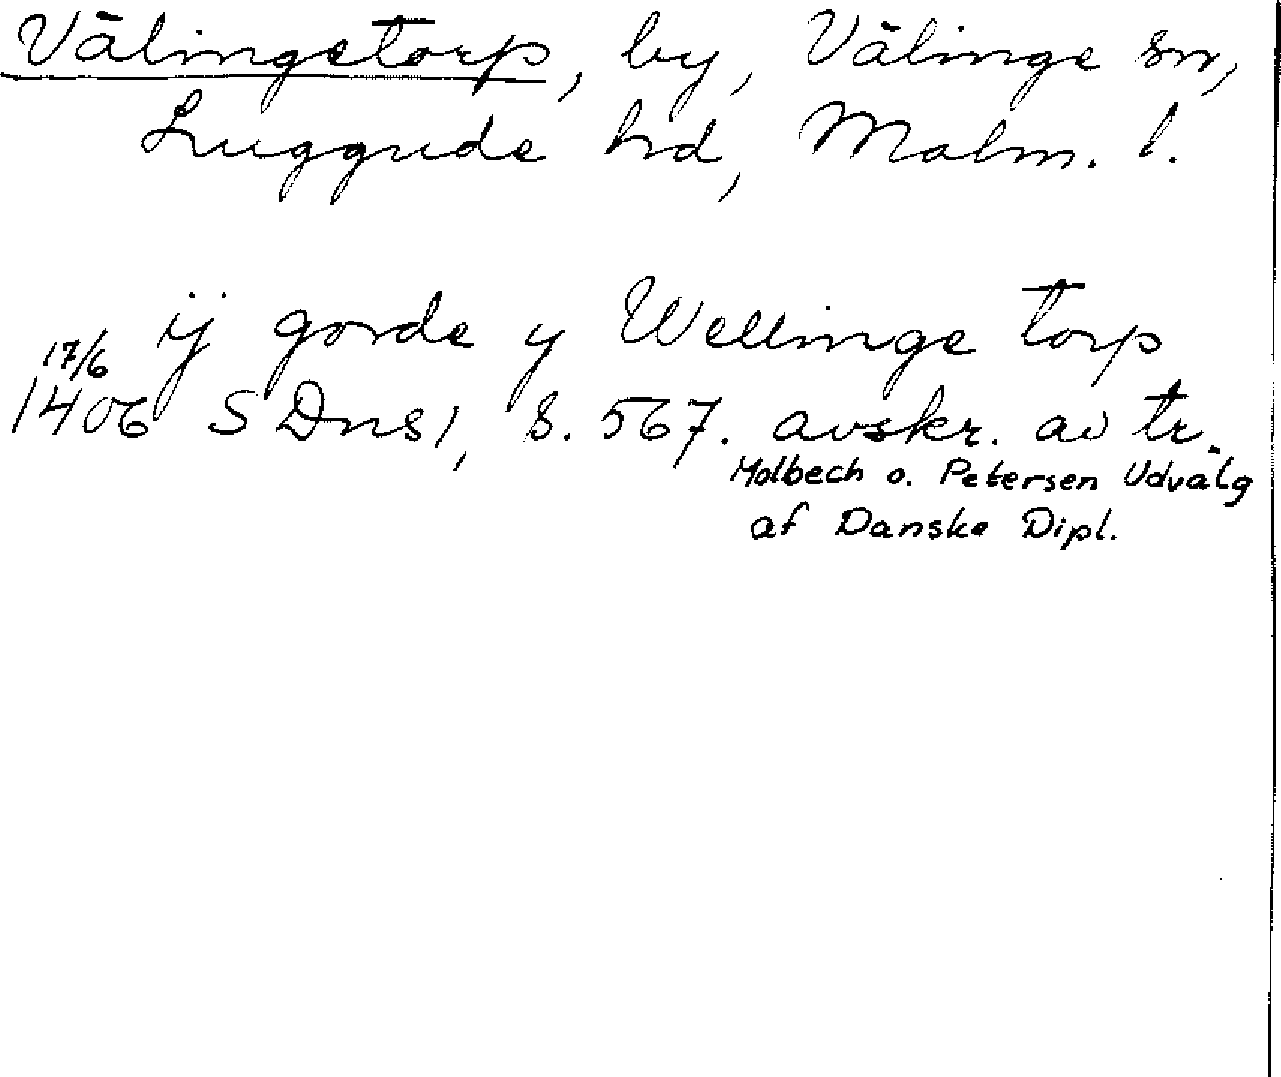 Välingetorp, by, Välinge sn,
Luggude hd, Malm. l.
ij gorde y Wellinge torp
17/6
1406 SDns1, s. 567. avskr. av tr.
Molbech o. Petersen Udvälg
af Danske Dipl.